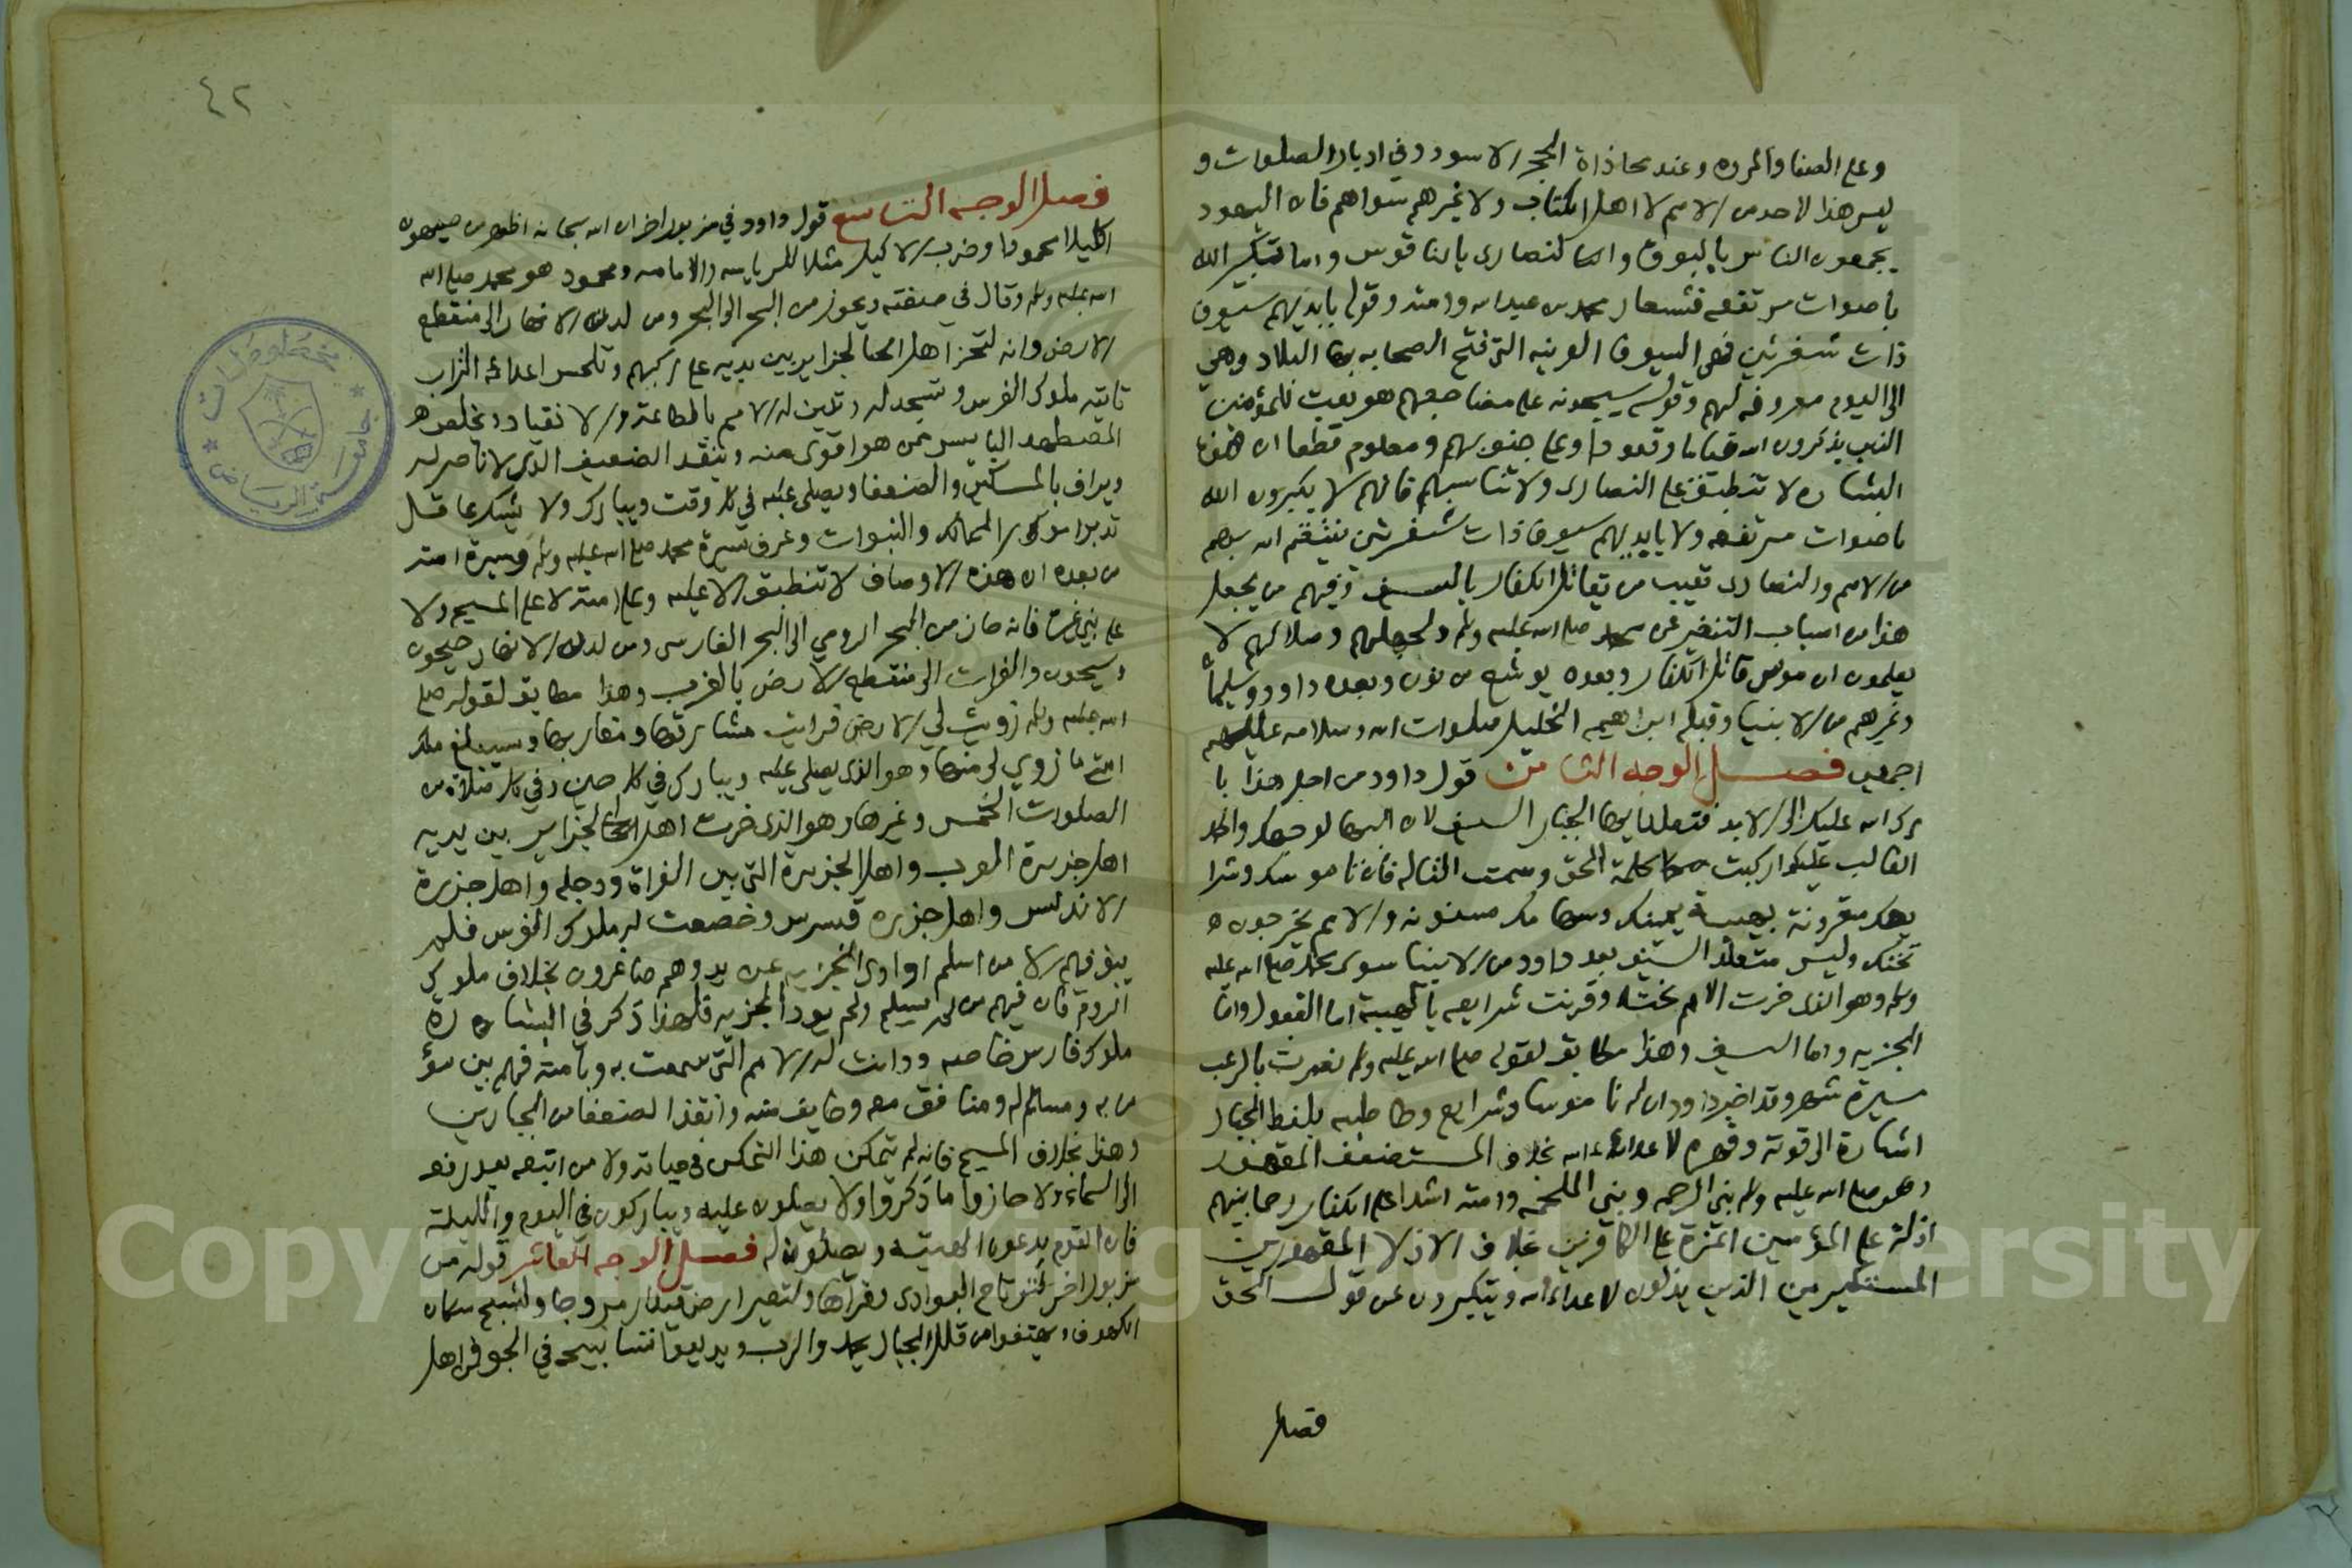 وعلى الصفا والمروه وعند محاذاة الحجر الاسود وفي ادبار الصلوات و
ليس هذا لاحد من الامم لا اهل الكتاب ولا غيرهم سواهم فان اليهود
يجمعون الناس بالبوق والنصارى بالناقوس واما تكبير الله
باصوات مرتفعه فشعار محمد بن عبد الله وامته وقوله بايديهم سيوف
ذات شفرتين فهي السيوف العربيه التي فتح الصحابه بها البلاد وهي
الى اليوم معروفه لهم وقوله يسبحونه على مضاجعهم هو نعت للمؤمنين
الذين يذكرون الله قياما وقعودا وعلى جنوبهم ومعلوم قطعا ان هذه
البشاره لا تنطبق على النصارى ولا تناسبهم فانهم لا يكبرون الله
باصوات مرتفعه ولا بايديهم سيوف ذات شفرتين ينتقم الله بهم
من الامم والنصارى تعيب من يقاتل الكفار بالسيف وفيهم من يجعل
هذا من اسباب التنفير عن محمد صلى الله عليه وسلم ولجهلهم وضلالهم لا
يعلمون ان موسى قاتل الكفار وبعده يوشع بن نون وبعده داود وسليمان
وغيرهم من الانبيا وقبله ابراهيم الخليل صلوات الله وسلامه عليهم
اجمعين فصل الوجه الثامن قول داود من اجل هذا با
رك الله عليك الى الابد فتقلد ايها الجبار السيف لان البها لوجهك والحمد
الغالب عليك اركب كلمة الحق وسمت التاله فان ناموسك وشرا
يعك مقرونة بهيبة يمينك وسهامك مسنونه والامم يخرجون
تحتك وليس متقلد السيف بعد داود من الانبيا سوى محمد صلى الله عليه
وسلم وهو الذي خرت الامم تحته وقرنت شرايعه بالهيبة اما القبول واما
الجزيه واما السيف وهذا مطابق لقوله صلى الله عليه وسلم نصرت بالرعب
مسيرة شهر وقد اخبر داود ان له ناموسا وشرايع وخاطبه بلفظ الجبار
اشارة الى قوته وقهره لاعداء الله بخلاف المستضعف المقهور
وهو صلى الله عليه وسلم نبي الرحمه ونبي الملحمه وامته اشداء على الكفار رحما بينهم
اذلة على المؤمنين اعزة على الكافرين بخلاف الاذلا المقهورين
المستكبرين الذين يذلون لاعداء الله ويتكبرون عن قول الحق
فصل
٤٢
فصل الوجه التاسع قول داود في مزمور اخر ان الله سبحانه اظهر من صيهون
اكليلا محمودا وضرب الاكليل مثلا للرياسه والامامه ومحمود هو محمد صلى الله
الله عليه وسلم وقال في صفته ويحوز من البحر الى البحر ومن لدن الانهار الى منقطع
الارض وانه لتخر اهل الجزاير بين يديه على ركبهم وتلحس اعداؤه التراب
تاتيه ملوك الفرس وتسجد له وتدين له الامم بالطاعة والانقياد ويخلص
المضطهد البايس ممن هو اقوى منه وينقذ الضعيف الذي لا ناصر له
ويراف بالمساكين والضعفا ويصلى عليه في كل وقت ويبارك ولا يشك عاقل
تدبر امور الممالك والنبوات وعرف سيرة محمد صلى الله عليه وسلم وسيرة امته
من بعده ان هذه الاوصاف لا تنطبق الا عليه وعلى امته لا على المسيح ولا
على نبي غيره فانه حاز من البحر الرومي الى البحر الفارسي ومن لدن الانهار جيحون
وسيحون والفرات الى منقطع الارض بالغرب وهذا مطابق لقوله صلى
الله عليه وسلم زويت لي الارض فرايت مشارقها ومغاربها وسيبلغ ملك
امتي ما زوي لي منها وهو الذي يصلى عليه ويبارك في كل حين وفي كل صلاة من
الصلوات الخمس وغيرها وهو الذي خرت اهل الجزاير بين يديه
اهل جزيرة العرب واهل الجزيرة التي بين الفراة ودجله واهل جزيرة
الاندلس واهل جزيره قبرس وخضعت له ملوك الفرس فلم
يبق فيهم الا من اسلم او ادى الجزيه عن يد وهم صاغرون بخلاف ملوك
الروم فان فيهم من لم يسلم ولم يود الجزيه فلهذا ذكر في البشاره
ملوك فارس خاصه ودانت له الامم التي سمعت به وبامته فهم بين مؤ
من به ومسالم له ومنافق معه وخايف منه وانقذ الضعفا من الجبارين
وهذا بخلاف المسيح فانه لم يتمكن هذا التمكن في حياته ولا من اتبعه بعد رفعه
الى السماء ولا حازوا ما ذكروا ولا يصلون عليه ويباركون في اليوم والليلة
فان القوم يدعون الهيته ويصلون له فصل الوجه العاشر قوله من
مزمور اخر لترتاح البوادي وقراها ولتصير ارض قيدار مروجا ولتسبح سكان
الكهوف ويهتفوا من قلل الجبال بحمد الرب ويذيعوا تسابيحه في الجو فمن اهل
مخطوطات
جامعة الرياض
Copyright © King Saud University